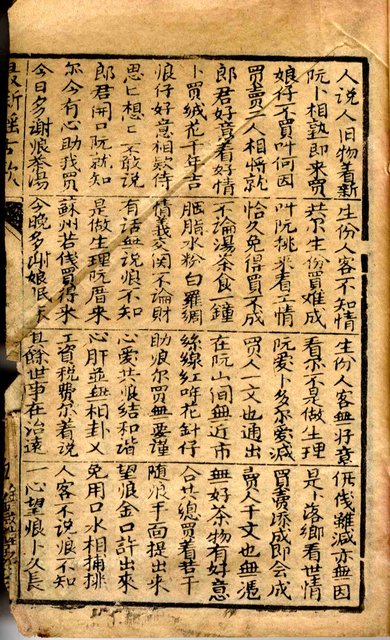 人說人旧物着新 生份人客不知情 生份人客無好意 伐離減亦無因
阮卜相熟即来買 若尔生份買难成 看尔不是做生理 是卜落鄉看世情
娘仔不買叫何因 叫阮挑来看工情 阮爱卜多尔爱減 買賣添成即会成
買賣二人相将就 恰久免得買不成 買人一文也通出 賣人千文也無憑
郎君好意看好情 不論湯茶食一鐘 在阮山间無近市 無好茶物有好意
卜買絨花千年吉 胭脂水粉白羅綢 絲線紅哖花針仔 合共總買着若干
娘仔好意相欵待 情義交関不論財 助娘尔買無要謹 隨娘手面提出来
思匕想匕不敢說 有話無說恨不知 心爱共娘结和諧 望娘金口許出来
郎君開口阮就知 是做生理阮厝来 心肝並無相卦乂 免用口水相捕排
尔今有心助我買 蘇州若伐買得来 工資稅費尔着說 人客不說娘不知
今日多謝娘茶湯 今晚多謝娘眠 其餘世事在治遠 一心望娘卜久長
最新